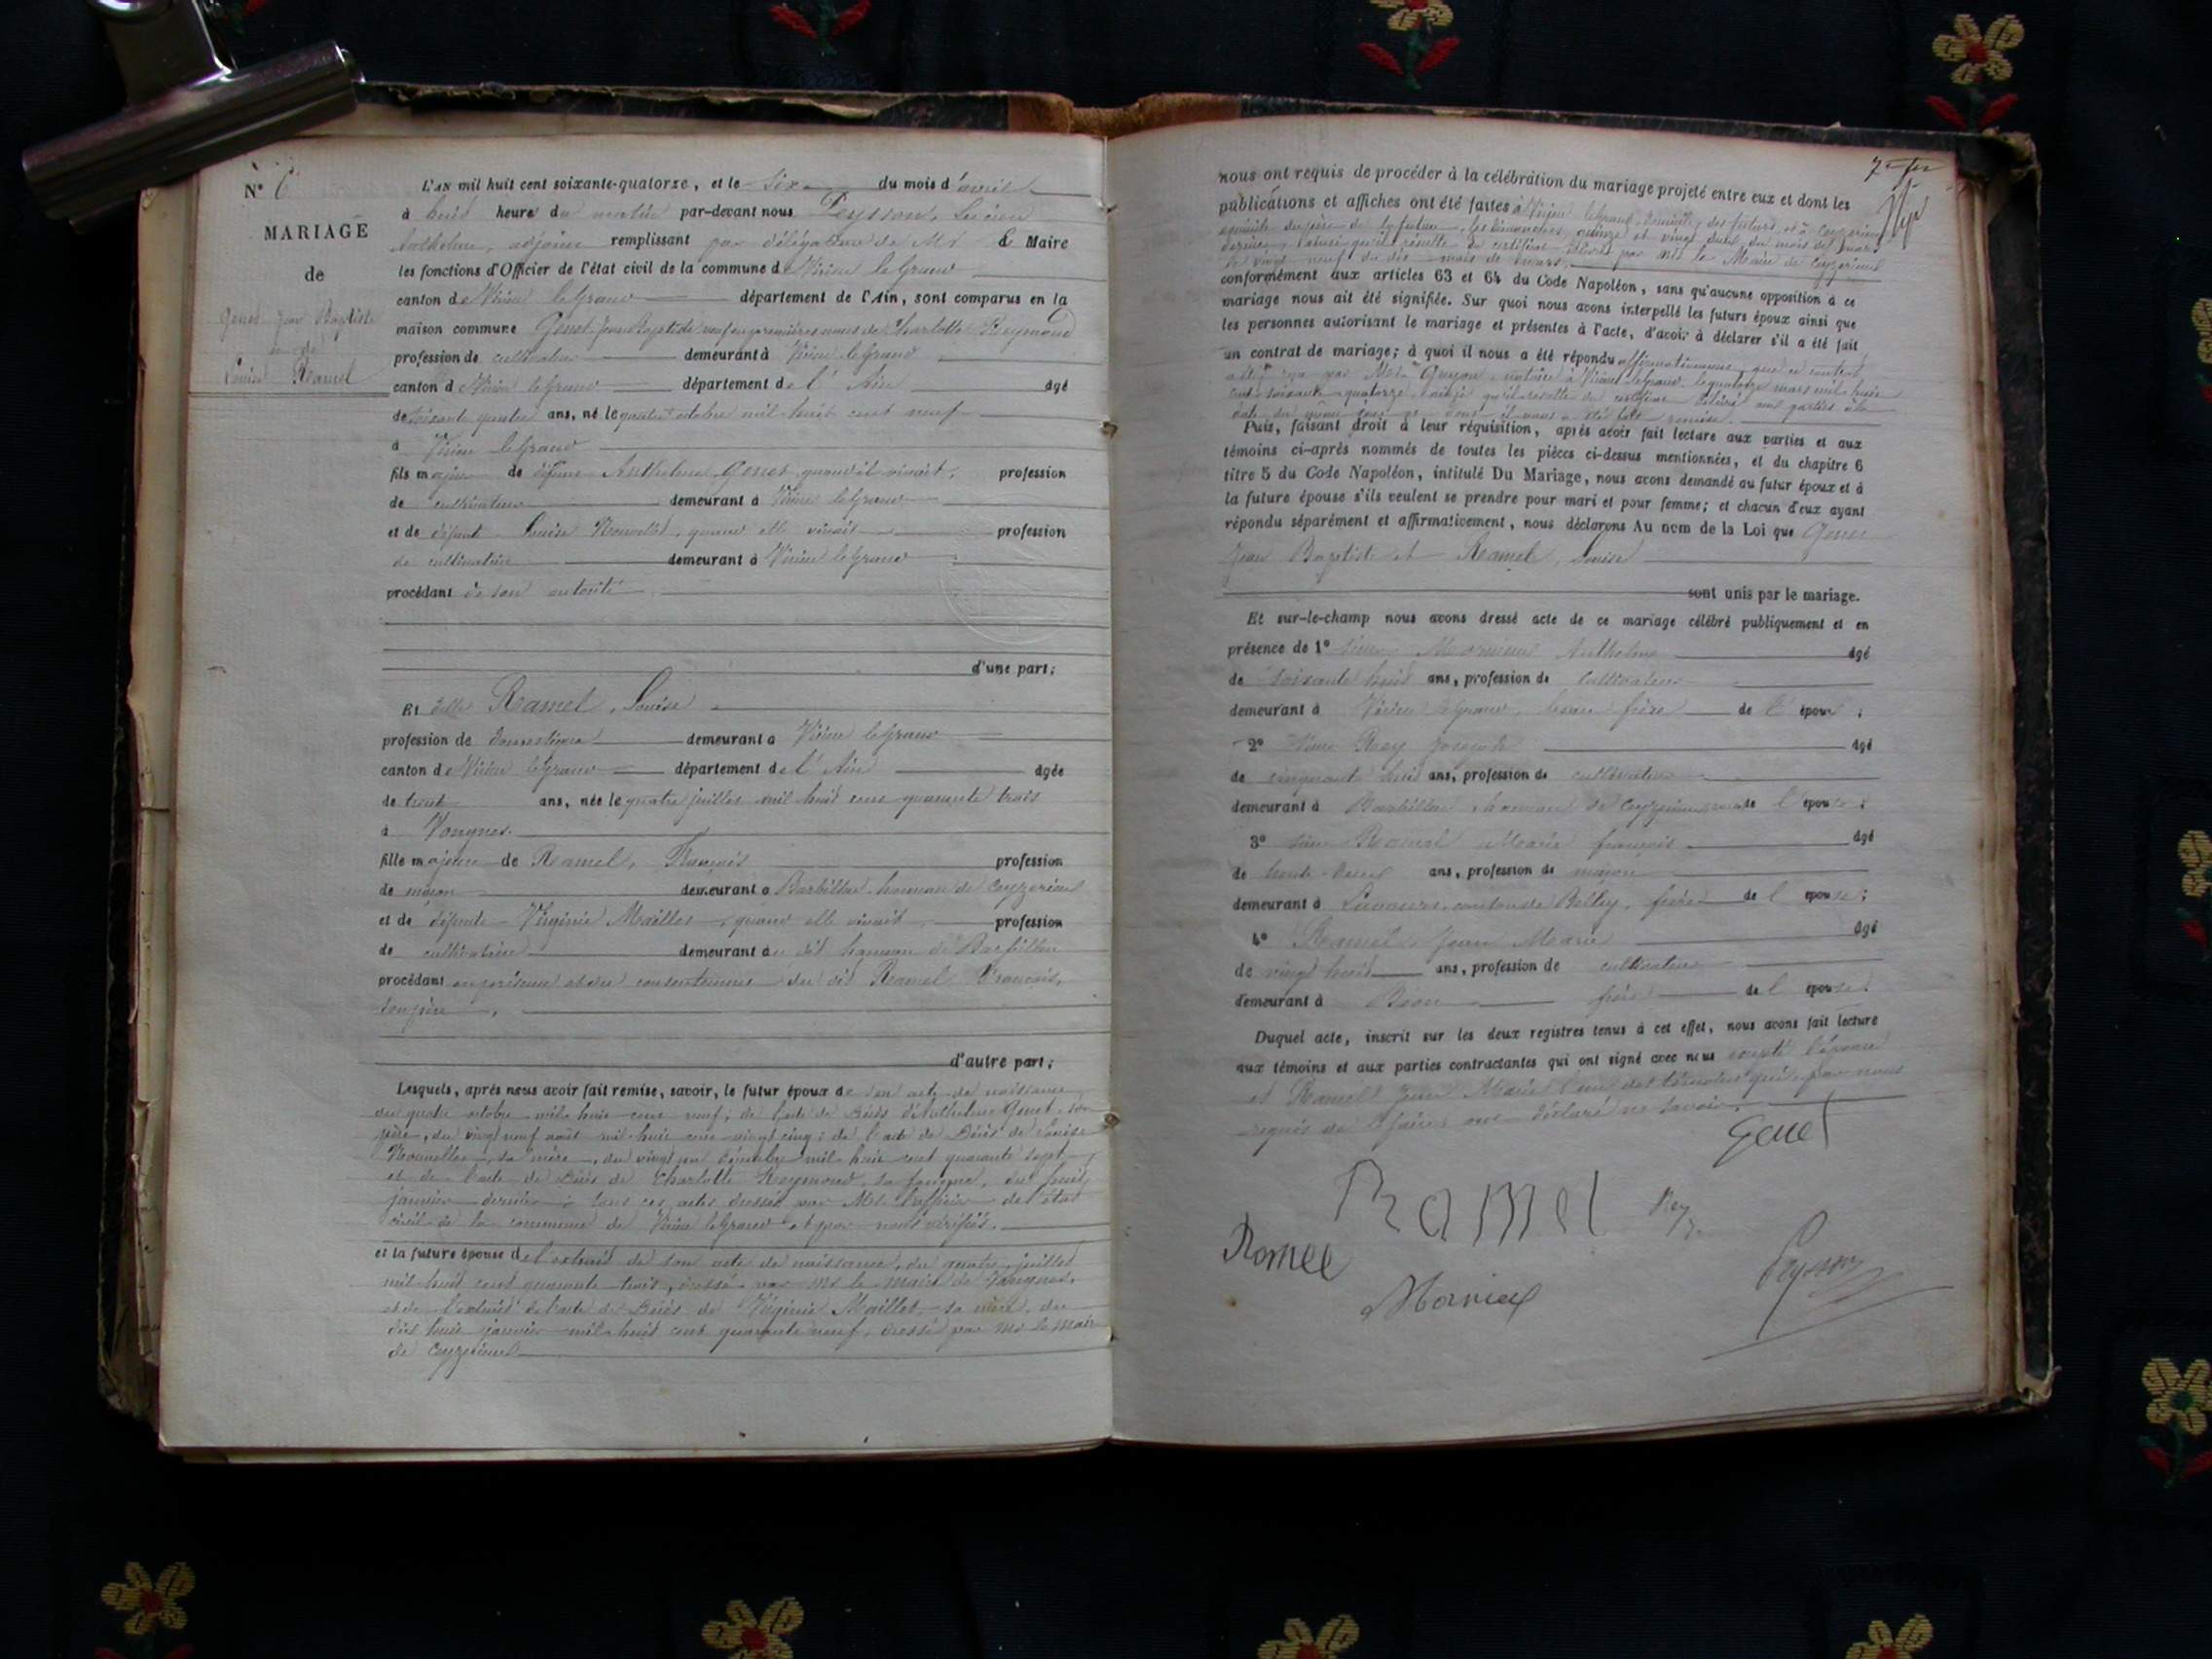 N° 6
MARIAGE
de
Genet Jean Baptiste
et de
Louise Ramel
L'AN mil huit cent soixante-quatorze, et le six du mois d'avril
à huit heure du matin par-devant nous Peysson, Lucien
Anthelme, adjoint remplissant par délégation de Mr le Maire
les fonctions d'Officier de l'état civil de la commune de Virieu le Grand
canton de Virieu le Grand département de l'Ain, sont comparus en la
maison commune Genet Jean Baptiste veuf en premières noces de Charlotte Reymond
profession de cultivateur demeurant à Virieu le Grand
canton de Virieu le Grand département de l'Ain âgé
de soixante quatre ans, né le quatre octobre mil huit cent neuf
à Virieu le Grand
fils majeur de défunt Anthelme Genet quand il vivait, profession
de cultivateur demeurant à Virieu le Grand
et de défunte Louise Nouvellet, quand elle vivait profession
de cultivatrice demeurant à Virieu le Grand
procédant de son autorité
d'une part;
Et delle Ramel, Louise
profession de domestique demeurant à Virieu le Grand
canton de Virieu le Grand département de l'Ain âgée
de trente ans, née le quatre juillet mil huit cent quarante trois
à Vongnes
fille majeure de Ramel, François profession
de maçon demeurant à Barbillieu hameau de Ceyzerieu
et de défunte Virginie Maillet, quand elle vivait profession
de cultivatrice demeurant au dit hameau de Barbillieu
procédant en présence et du consentement du dit Ramel François,
son père,
d'autre part;
Lesquels, après nous avoir fait remise, savoir, le futur époux de son acte de naissance
du quatre octobre mil huit cent neuf; de l'acte de décès d'Anthelme Genet son
père, du vingt neuf août mil huit cent vingt cinq; de l'acte de décès de Louise
Nouvellet, sa mère, du vingt un décembre mil huit cent quarante sept
et de l'acte de décès de Charlotte Reymond, sa femme, du huit
janvier dernier; tous ces actes dressés par Mr l'officier de l'état
civil de la commune de Virieu le Grand et par nous vérifiés.
et la future épouse de l'extrait de son acte de naissance, du quatre juillet
mil huit cent quarante trois, dressé par Mr le Maire de Vongnes,
et de l'extrait de l'acte de décès de Virginie Maillet, sa mère, du
dix huit janvier mil huit cent quarante neuf, dressé par Mr le Maire
de Ceyzerieu
nous ont requis de procéder à la célébration du mariage projeté entre eux et dont les
publications et affiches ont été faites à Virieu le Grand domicile des futurs, et à Ceyzerieu
domicile du père de la future, les dimanches quinze et vingt deux du mois de mars
dernier, ainsi qu'il résulte du certificat délivré par Mr le Maire de Ceyzerieu
le vingt neuf du dit mois de mars,
conformément aux articles 63 et 64 du Code Napoléon, sans qu'aucune opposition à ce
mariage nous ait été signifiée. Sur quoi nous avons interpellé les futurs époux ainsi que
les personnes autorisant le mariage et présentes à l'acte, d'avoir à déclarer s'il a été fait
un contrat de mariage; à quoi il nous a été répondu affirmativement, que ce contrat
a été reçu par Me Guyon notaire à Virieu le Grand le quatorze mars mil huit
cent soixante quatorze, ainsi qu'il résulte du certificat délivré aux parties à la
date du dont il nous a été fait remise.
Puis, faisant droit à leur réquisition, après avoir fait lecture aux parties et aux
témoins ci-après nommés de toutes les pièces ci-dessus mentionnées, et du chapitre 6
titre 5 du Code Napoléon, intitulé Du Mariage, nous avons demandé au futur époux et à
la future épouse s'ils veulent se prendre pour mari et pour femme; et chacun d'eux ayant
répondu séparément et affirmativement, nous déclarons Au nom de la Loi que Genet
Jean Baptiste et Ramel, Louise
sont unis par le mariage.
Et sur-le-champ nous avons dressé acte de ce mariage célébré publiquement et en
présence de 1° sieur Anthelme âgé
de soixante huit ans, profession de cultivateur
demeurant à Virieu le Grand, beau frère de l'époux;
2° sieur Rey Joseph âgé
de cinquante huit ans, profession de cultivateur
demeurant à Barbillieu hameau de Ceyzerieu de l'épouse;
3° sieur Ramel Marie François âgé
de trente deux ans, profession de maçon
demeurant à Lavours, canton de Belley, frère de l'épouse;
4° Ramel, Jean Marie âgé
de vingt huit ans, profession de cultivateur
demeurant à Béon frère de l'épouse.
Duquel acte, inscrit sur les deux registres tenus à cet effet, nous avons fait lecture
aux témoins et aux parties contractantes qui ont signé avec nous excepté l'épouse
et Ramel Jean Marie l'un des témoins qui, par nous
requis de le faire, ont déclaré ne savoir.
Genet
Ramel Rey J.
Ramel
Peysson